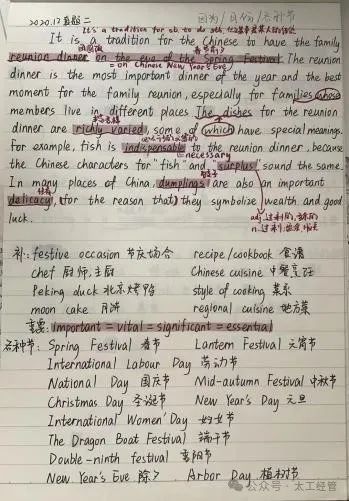 2020.12 真题二
It's a tradition for sb to do sth
It is a tradition for the Chinese to have the family
团圆饭
reunion dinner on the eve of the Spring Festival. The reunion
= on Chinese New Year's Eve
dinner is the most important dinner of the year and the best
moment for the family reunion, especially for families whose
members live in different places. The dishes for the reunion
丰富多样
dinner are richly varied, some of which have special meanings.
For example, fish is indispensable to the reunion dinner, because
necessary
the Chinese characters for "fish" and "surplus" sound the same.
饺子
In many places of China, dumplings are also an important
delicacy, (for the reason that) they symbolize wealth and good
luck.
补: festive occasion 节庆场合 recipe/cookbook 食谱
chef 厨师,主厨 Chinese cuisine 中餐烹饪
Peking duck 北京烤鸭 style of cooking 菜系
moon cake 月饼 regional cuisine 地方菜
重要: important = vital = significant = essential
各种节: Spring Festival 春节 Lantern Festival 元宵节
International Labour Day 劳动节
National Day 国庆节 Mid-autumn Festival 中秋节
Christmas Day 圣诞节 New Year's Day 元旦
International Women' Day 妇女节
The Dragon Boat Festival 端午节
Double-ninth festival 重阳节
New Year's Eve 除夕 Arbor Day 植树节
公众号 · 太工经管